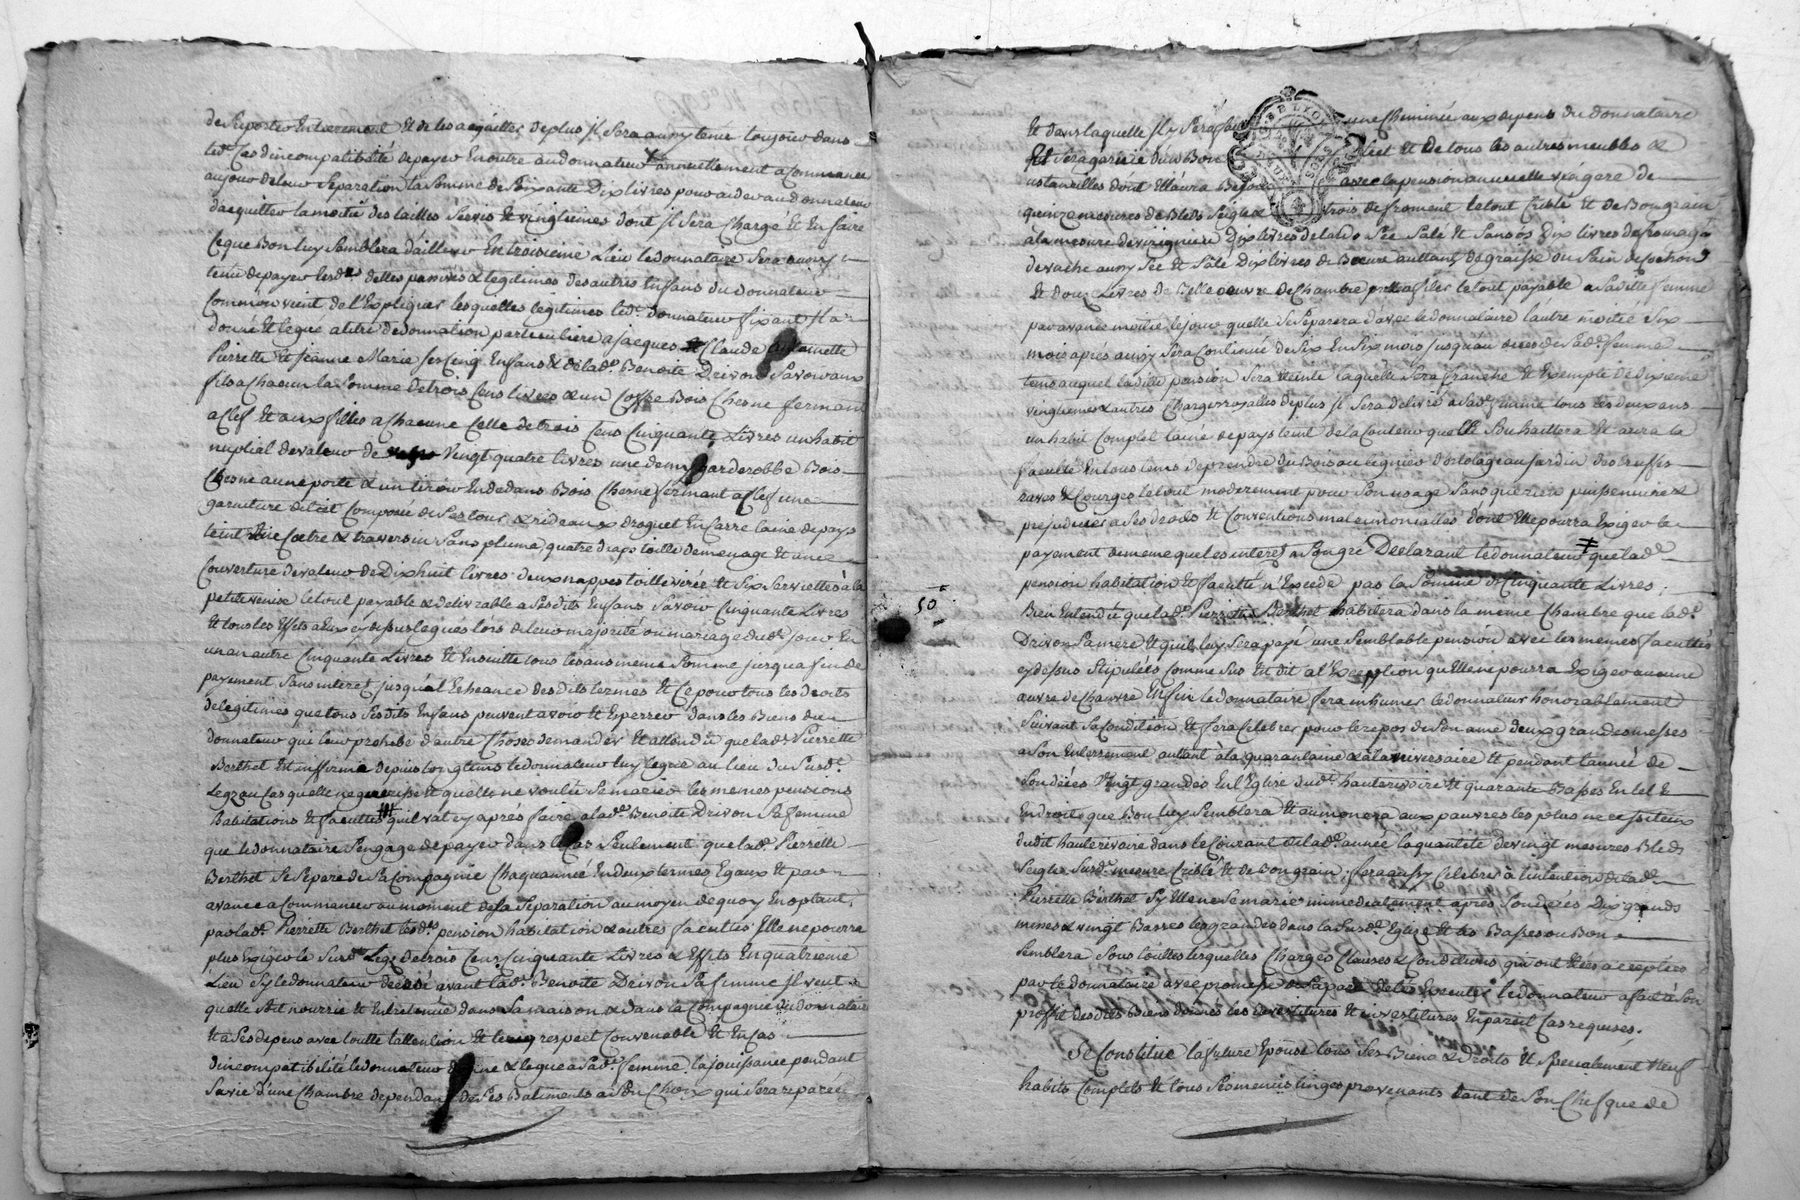 de Reporter Entierement Et de les acquitter, de plus Il Sera aussy tenu toujour dans
led. Cas dincompatibilité de payer En outre au donnateur annuellement a Commencer
au jour de leur Separation la Somme de Soixante Dix livres pour aider au donnateur
dacquitter la moitié des tailles Servis Et vingtiemes dont Il Sera Chargé Et En faire
Ce que Bon luy Semblera d'ailleur En troisieme Lieu le donnataire Sera aussy
tenu de payer les d. dettes passives & legitimes des autres Enfans du donnateur
Comme on vient de l'Expliquer lesquelles legitimes led. donnateur fixant Il a
donné Et legué a titre de donnation particuliere a jacques Claude antoinette
Pierrette Et jeanne Marie ses Cinq Enfans & de lad. Benoite Drivon Savoir aux
fils a Chacun la Somme de trois Cens livres & un Coffre Bois Chesne fermant
a Clef Et aux filles a Chacune Celle de trois Cens Cinquante Livres un habit
nuptial de valeur de Vingt quatre livres une demy garderobbe Bois
Chesne a une porte & un tiroir En dedans Bois Chesne fermant a Clef une
garniture de lit Composée de Ses tour & rideaux droguet En Sarre laine de pays
teint une Coetre & traversin Sans plume, quatre draps toille de menage Et une
Couverture de valeur de Dixhuit livres deux nappes toille Et Six Serviettes à la
petite venise le tout payable & delivrable a Sesdits Enfans Savoir Cinquante Livres
Et tous les Effets a Eux cy dessus legués lors de leur majorité ou mariage dud. jour En
un an autre Cinquante Livres Et Ensuitte tous les ans meme Somme jusqua fin de
payement Sans interet jusqu'al Echeance desdits termes Et Ce pour tous les droits
de legitimes que tous Sesdits Enfans peuvent avoir Et Esperer dans les Biens du
donnateur qui leur prohibe d'autre Chose demander Et attendu que lad. Pierrette
Berthet Est infirme depuis longtems le donnateur luy legue au lieu du Susd.
Legs au Cas quelle ne guerisse Et quelle ne voulu Se marier les memes pensions
habitations Et facultés quil vat cy aprés faire a lad. Benoite Drivon Sa femme
que le donnataire Sengage de payer dans le Cas Seulement que lad. Pierrette
Berthet Se Separe de Sa Compagnie Chaque année En deux termes Egaux Et par
avance a Commencer au moment de Sa Separation au moyen de quoy En optant
par lad. Pierrette Berthet lesd. pension habitation & autres facultés Elle ne pourra
plus Exiger le Susd. Legs de trois Cens Cinquante Livres & Effets En quatrieme
Lieu Sy le donnateur decedé avant lad. Benoite Drivon Sa femme Il veut
quelle Soit nourrie Et Entretenüe dans Sa maison & dans la Compagnie du donnataire
Et a Ses depens avec toutte lattention Et le respect Convenable Et En Cas
dincompatibilité le donnateur donne & legue a Sad. femme la jouissance pendant
Sa vie d'une Chambre dependant de Ses Batiments a Son Choix qui Sera reparée
Et dans laquelle Il y Sera fait une Cheminée aux depens du donnataire
Et Sera garnie d'un Bois de lict Et de tous les autres meubles &
ustanciles dont Elle aura Besoin avec la pension annuelle viagere de
quinze mesures de Bleds Seigle & trois de froment le tout Criblé Et de Bon grain
a la mesure de virignieu Dix livres de lard Sec Salé Et Sans os Dix livres de fromage
de vache aussy Sec Et Salé Dix livres de Beure aultant de graisse ou Sain de Cochon
Et douze Livres de Belle oeuvre de Chambre prette a filer le tout payable a Sa ditte femme
par avance moitié le jour quelle Se Separera d'avec le donnataire l'autre moitié Six
mois aprés ainsy Sera Continué de Six En Six mois jusqu'au deces de Sad. femme
tems auquel la ditte pension Sera Eteinte laquelle Sera franche Et Exempte de dixieme
vingtiemes & autres Charges royalles de plus Il Sera delivré a Sad. femme tous les deux ans
un habit Complet laine de pays teint de la Couleur quelle Souhaittera Et aura la
faculté En tous tems de prendre du Bois au legnier d'ortolage au jardin des truffes
raves & Courges le tout moderement pour Son usage Sans que rien puissent nuire &
prejudicier a Ses droits Et Conventions matrimonialles dont Elle pourra Exiger le
payement de meme que les interet a Son gré Declarant le donnateur que lad.
pension habitation Et faculté n'Excede pas la Somme de Cinquante Livres,
Bien Entendu que lad. Pierrette Berthet habitera dans la meme Chambre que lad.
Drivon Sa mere Et quil luy Sera payé une Semblable pension avec les memes facultés
cy dessus Stipulées Comme Sus Est dit a l'Exception qu'Elle ne pourra Exiger aucune
œuvre de Chanvre Enfin le donnataire fera inhumer le donnateur honorablement
Suivant Sa Condition Et fera Celebrer pour le repos de Son ame deux grandes messes
a Son Enterrement autant a la quarantaine & a laniversaire Et pendant l'année de
Son déces Vingt grandes En l'Eglise dud. hauterivoire Et quarante Basses En tel
Endroit que Bon luy Semblera Et aumonera aux pauvres les plus necessiteux
dudit hauterivoire dans le Courant de lad. année la quantité de vingt mesures Bleds
Seigle Susd. mesure Criblé Et de Bon grain; fera aussy Celebrer à l'intention de lad.
Pierrette Berthet Sy Elle ne Se marie immediatement aprés Son déces Dix grands
messes & vingt Basses les grandes dans la Susd. Eglise Et les Basses ou Bon
Semblera Sous touttes lesquelles Charges Clauses & Conditions qui ont étés acceptées
par le donnataire avec promesse de Sa part de les Executer le donnateur a fait à Son
proffit desdits Biens donnés les devestitures Et investitures En pareil Cas requises.
Se Constitue la future Epouse tous Ses Biens & Droits Et Specialement Neuf
habits Complets Et tous Ses menus linges provenants tant de Son Chef que de
50